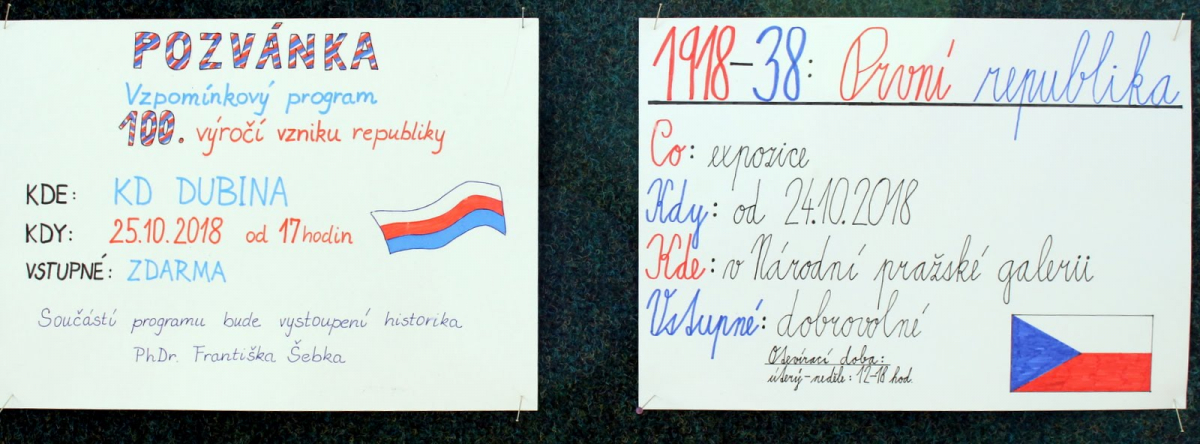 POZVÁNKA
Vzpomínkový program
100. výročí vzniku republiky
KDE: KD DUBINA
KDY: 25.10.2018 od 17 hodin
VSTUPNÉ: ZDARMA
Součástí programu bude vystoupení historika
PhDr. Františka Šebka
1918-38: První republika
Co: expozice
Kdy: od 24.10.2018
Kde: v Národní pražské galerii
Vstupné: dobrovolné
Otevírací doba:
úterý-neděle: 12-18 hod.